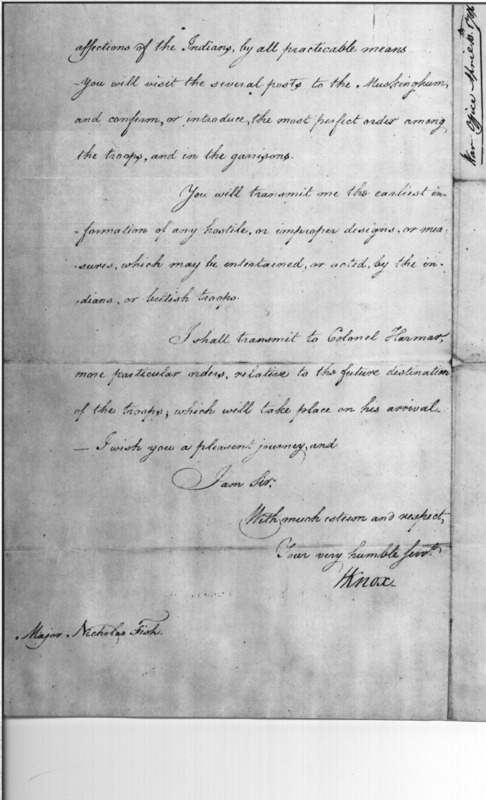 affections of the Indians, by all practicable means
You will visit the several posts to the Muskinghum,
and confirm, or introduce, the most perfect order among
the troops, and in the garrisons.
You will transmit me the earliest in-
-formation of any hostile, or improper designs, or mea-
-sures, which may be entertained, or acted, by the in-
-dians, or british troops.
I shall transmit to Colonel Harmar,
more particular orders, relative to the future destination
of the troops; which will take place on his arrival.
— I wish you a pleasent journey, and
I am Sir,
With much esteem and respect,
Your very humble Servt.
HKnox
Major Nicholas Fish.
War Office April